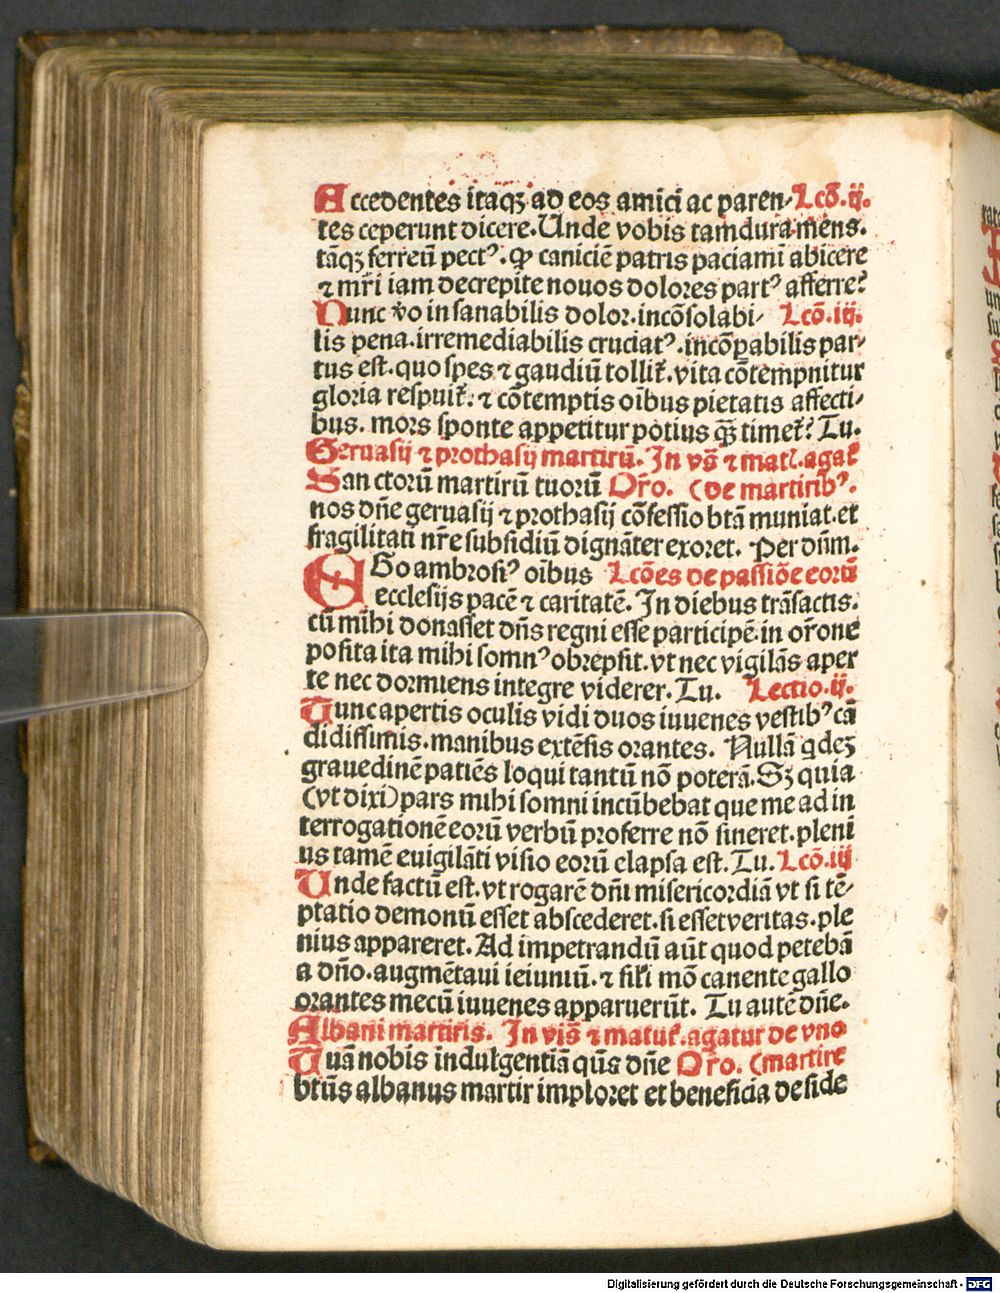 Accedentes itaqꝫ ad eos amici ac paren⸗ Lcō.ij.
tes ceperunt dicere. Unde vobis tam dura mens.
tāqꝫ ferreū pectꝰ. ꝙ caniciē patris paciami abicere
⁊ mr̄i iam decrepite nouos dolores partꝰ afferre?
Nunc v̄o in sanabilis dolor. incōsolabi⸗ Lcō.iij.
lis pena. irremediabilis cruciatꝰ. incōpabilis par⸗
tus est. quo spes ⁊ gaudiū tollit̄. vita cōtempnitur
gloria respuit̄. ⁊ cōtemptis oībus pietatis affecti⸗
bus. mors sponte appetitur potius qꝫ̄ timet̄? Tu.
Geruasij ⁊ prothasij martirū. In vꝭ̄ ⁊ matl̄. agat̄
Sanctorū martirū tuorū Or̄o. (de martiribꝰ.
nos dn̄e geruasij ⁊ prothasij cōfessio btā muniat. et
fragilitati nr̄e subsidiū dignāter exoret. Per dn̄m.
EGo ambrosiꝰ oībus Lcōes de passiōe eorū
ecclesijs pacē ⁊ caritatē. In diebus trāsactis.
cū mihi donasset dn̄s regni esse participē. in or̄one
posita ita mihi somnꝰ obrepsit. vt nec vigilās aper
te nec dormiens integre viderer. Tu. Lectio.ij.
Tunc apertis oculis vidi duos iuuenes vestibꝰ cā
didissimis. manibus extēsis orantes. Nullā qdeꝫ
grauedinē patiēs loqui tantū nō poterā. Sꝫ quia
(vt dixi) pars mihi somni incūbebat que me ad in
terrogationē eorū verbū proferre nō sineret. pleni
us tamē euigilāti visio eorū elapsa est. Tu. Lcō.iij
Unde factū est. vt rogarē dn̄i misericordiā vt si tē⸗
ptatio demonū esset abscederet. si esset veritas. ple
nius appareret. Ad impetrandū aūt quod petebā
a dn̄o. augmētaui ieiuniū. ⁊ sil̄i mō canente gallo
orantes mecū iuuenes apparuerūt. Tu autē dn̄e.
Albani martiris. In viꝭ̄ ⁊ matut̄. agatur de vno
Tuā nobis indulgentiā qūs dn̄e Or̄o. (martire
btūs albanus martir imploret et beneficia de side
Digitalisierung gefördert durch die Deutsche Forschungsgemeinschaft - DFG